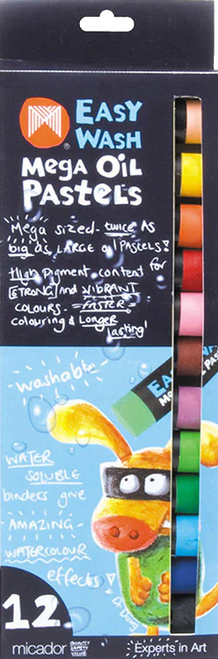 EASY
WASH
MEGA OIL
PASTELS
Mega sized - twice as
big as LARGE oil PASTELS!
High Pigment content for
STRONG AND VIBRANT
COLOURS - FASTER
colouring & Longer
lasting!
washable
EAS
MEGA
WATER
SOLUBLE
binders give
- AMAZING -
WATERCOLOUR
effects!
12
micador
Experts in Art